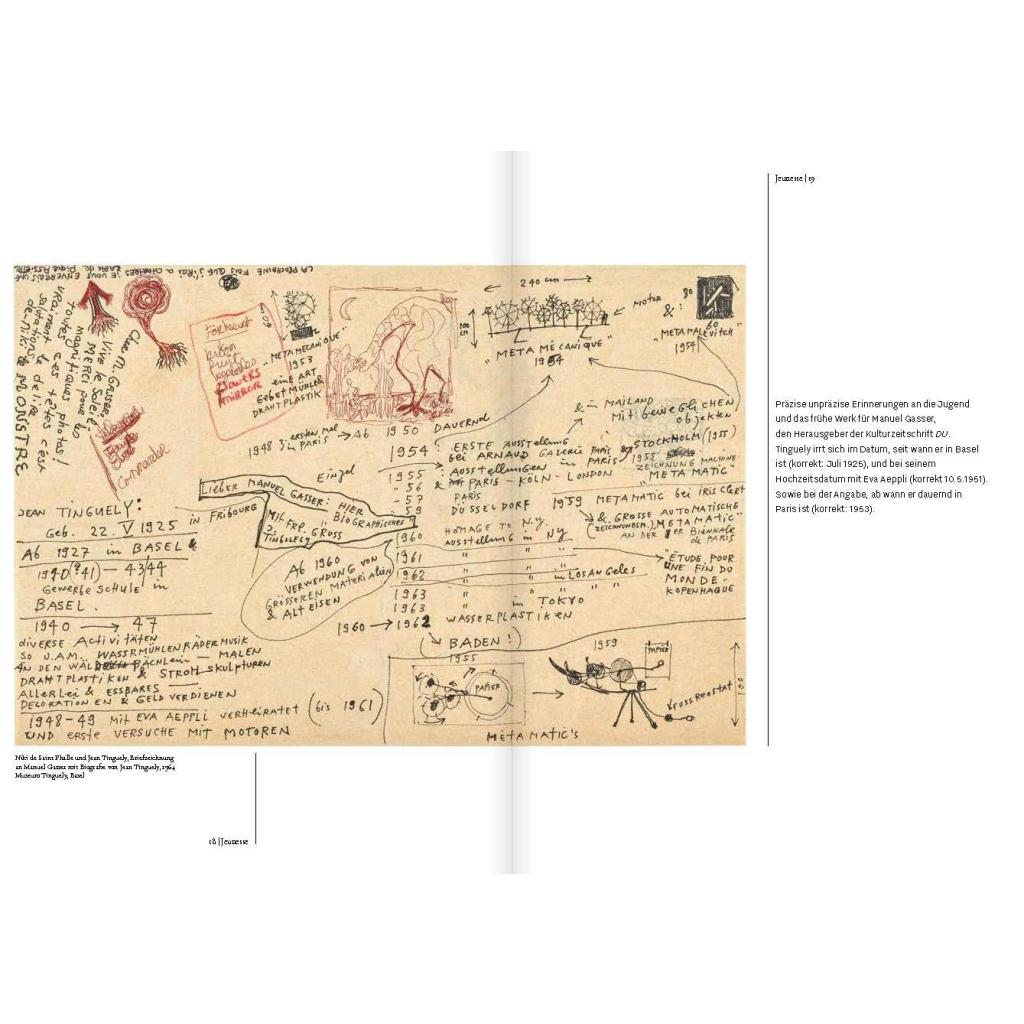 Jeunesse | 19
LA PROCHAINE FOIS QUE J'IRAI A CHARTRES
JE VOUS ENVERRAIS UNE
CARTE de Pique Assiette
Cher M. Gasser,
Vive le Soleil
MERCI pour les
magnifiques photos!
toutes ces têtes c'est
vraiment le délire
salutations
de Niki & MONSTRE
240 cm
100 cm
MOTOR
&:
80
60
"METAMALEVITCH"
1954
"META MÉCANIQUE"
1954
"METAMECANIQUE"
1953
eine ART
GEBETMÜHLE
DRAHTPLASTIK
FLOWERS
MIRROR
1948 z. ersten mal in PARIS → Ab 1950 DAUERND
1954: ERSTE AUSSTELLUNG
bei ARNAUD GALERIE PARIS
& in MAILAND
Mit beweglichen
objekten
STOCKHOLM (1955)
Einzel
1955 Ausstellungen in PARIS
- 56 & PARIS - KÖLN - LONDON
- 57 PARIS
- 59 DÜSSELDORF
1955
ZEICHNUNG MACHINE
"META MATIC"
1959 METAMATIC bei IRIS CLERT
& GROSSE AUTOMATISCHE
(ZEICHNUNGSM.) "METAMATIC"
AN DER 1er BIENNALE
de PARIS
LIEBER MANUEL GASSER: HIER
BIOGRAPHISCHES
Mit FRP. GRUSS
J. TINGUELY
JEAN TINGUELY:
Geb. 22. V 1925 in FRIBOURG
Ab 1927 in BASEL &
1940 (?41) — 43/44
Gewerbe Schule in
BASEL.
1940 → 47
diverse Activitäten
so U.A.M. WASSRMÜHLENRÄDERMUSIK
AN DEN WALDBÄCHLEIN — MALEN
DRAHTPLASTIKEN & STROHSKULPTUREN
ALLERLEI & ESSBARES
DECORATIONEN & GELD VERDIENEN
1948-49 Mit EVA AEPPLI VERHEIRATET (bis 1961)
UND erste VERSUCHE MIT MOTOREN
Ab 1960
VERWENDUNG VON
GRÖSSEREN MATERIALIEN
& ALTEISEN
1960 HOMAGE TO N.Y.
AUSSTELLUNG in NY
1961 " " "
1962 " " in LOS ANGELES
1963 " " "
1963 " in TOKYO
1960 → 1962 WASSERPLASTIKEN
(→ BADEN!)
"ÉTUDE POUR
UNE FIN DU
MONDE"
KOPENHAGUE
1955
PAPIER
1959
PAPIER
FUSSREOSTAT
100
MÉTAMATIC'S
Präzise unpräzise Erinnerungen an die Jugend
und das frühe Werk für Manuel Gasser,
den Herausgeber der Kulturzeitschrift DU.
Tinguely irrt sich im Datum, seit wann er in Basel
ist (korrekt: Juli 1925), und bei seinem
Hochzeitsdatum mit Eva Aeppli (korrekt 10.5.1951).
Sowie bei der Angabe, ab wann er dauernd in
Paris ist (korrekt: 1953).
Niki de Saint Phalle und Jean Tinguely, Briefzeichnung
an Manuel Gasser mit Biografie von Jean Tinguely, 1964
Museum Tinguely, Basel
18 | Jeunesse